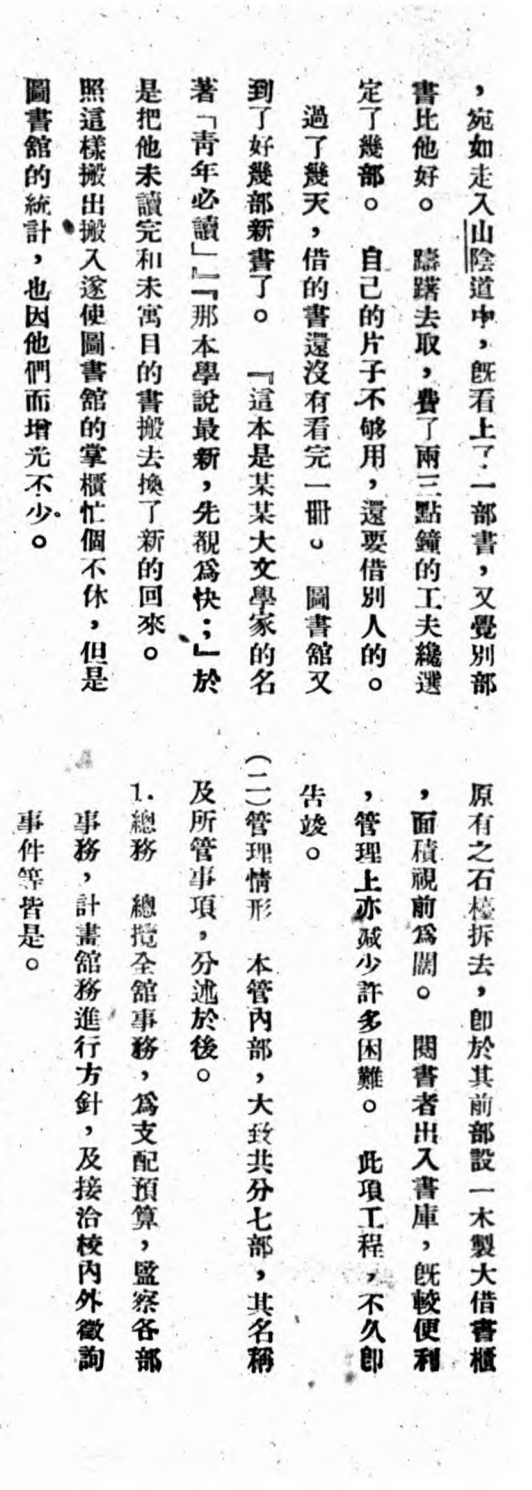 ，宛如走入山陰道中，旣看上了一部書，又覺別部
書比他好。 躊躇去取，費了兩三點鐘的工夫纔選
定了幾部。 自己的片子不够用，還要借別人的。
過了幾天，借的書還沒有看完一冊。 圖書舘又
到了好幾部新書了。 『這本是某某大文學家的名
著「靑年必讀」』『那本學說最新，先覩爲快；』於
是把他未讀完和未寓目的書搬去換了新的回來。
照這樣搬出搬入遂使圖書舘的掌櫃忙個不休，但是
圖書舘的統計，也因他們而增光不少。
原有之石檯拆去，卽於其前部設一木製大借書櫃
，面積視前爲闊。 閱書者出入書庫，旣較便利
，管理上亦减少許多困難。 此項工程，不久卽
告竣。
（二）管理情形 本管內部，大致共分七部，其名稱
及所管事項，分述於後。
1.總務 總攬全舘事務，爲支配預算，監察各部
事務，計畫舘務進行方針，及接洽校內外徵詢
事件等皆是。